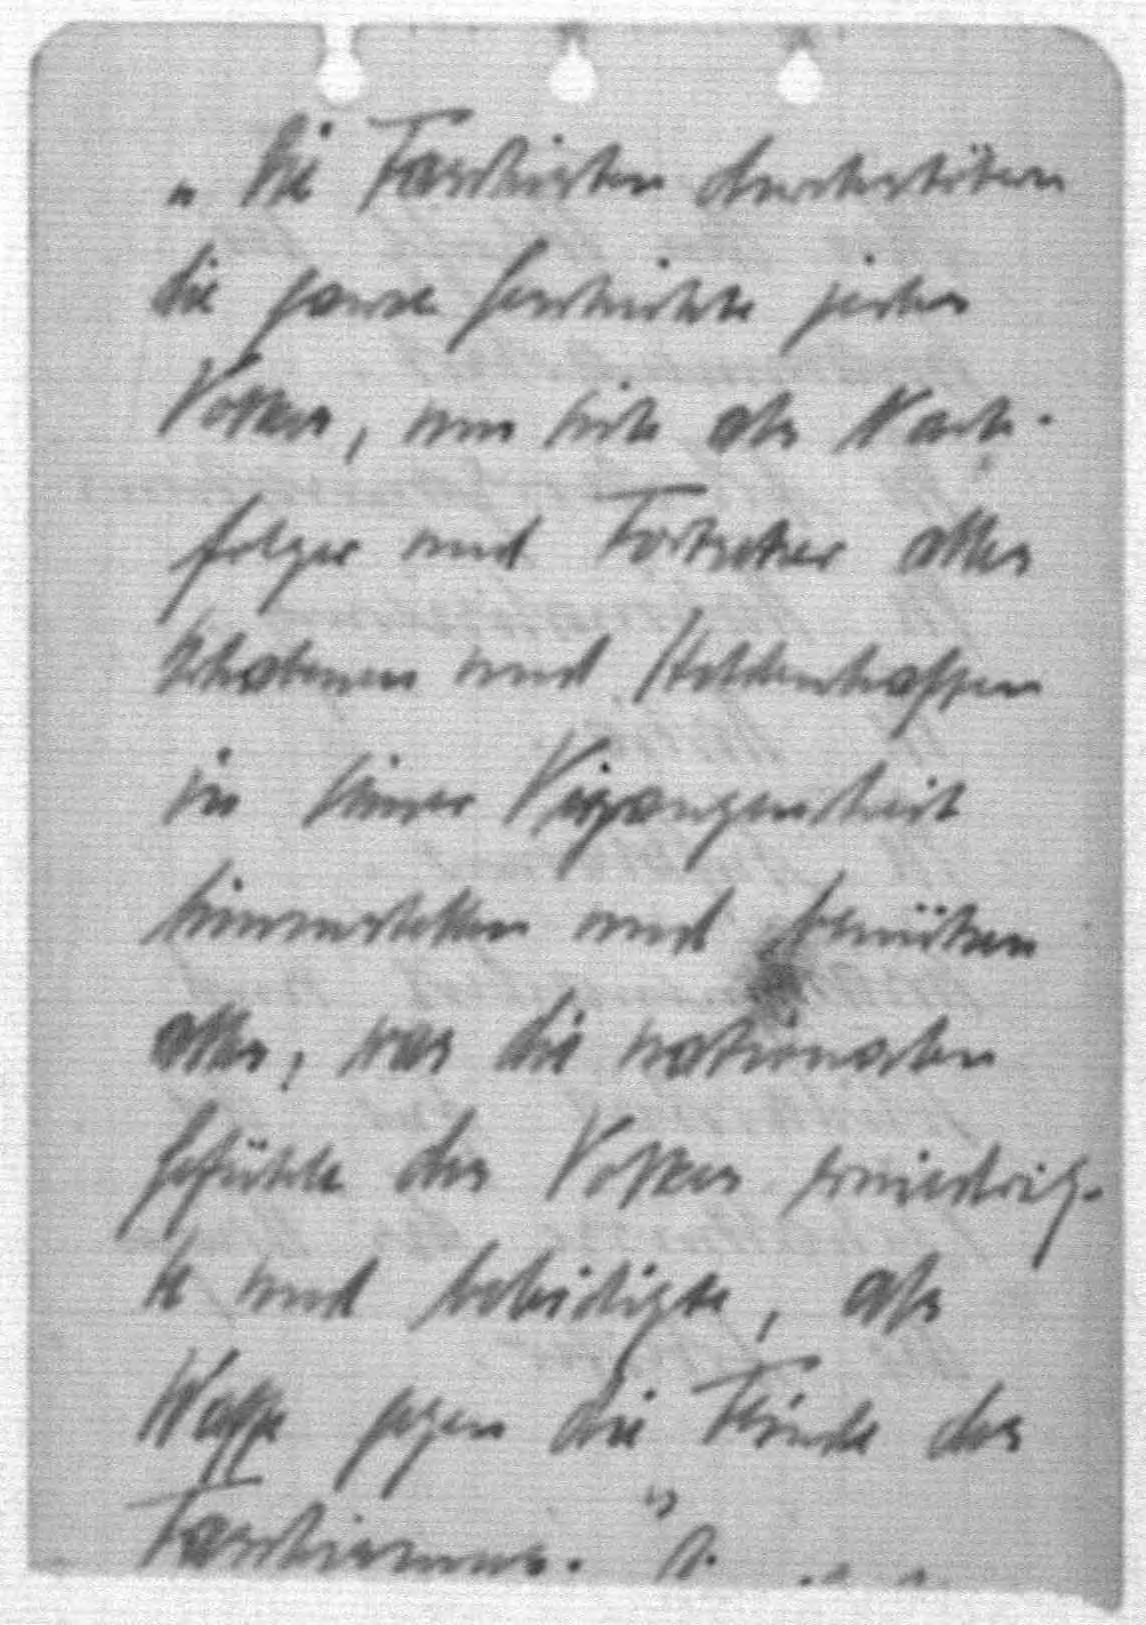 „Die Faschisten durchstöbern
die ganze Geschichte jedes
Volkes, um sich als Nach-
folger und Fortsetzer alles
Erhabenen und Heldenhaften
in seiner Vergangenheit
hinzustellen und benützen
alles, was die nationalen
Gefühle des Volkes erniedrig-
te und beleidigte, als
Waffe gegen die Feinde des
Faschismus."